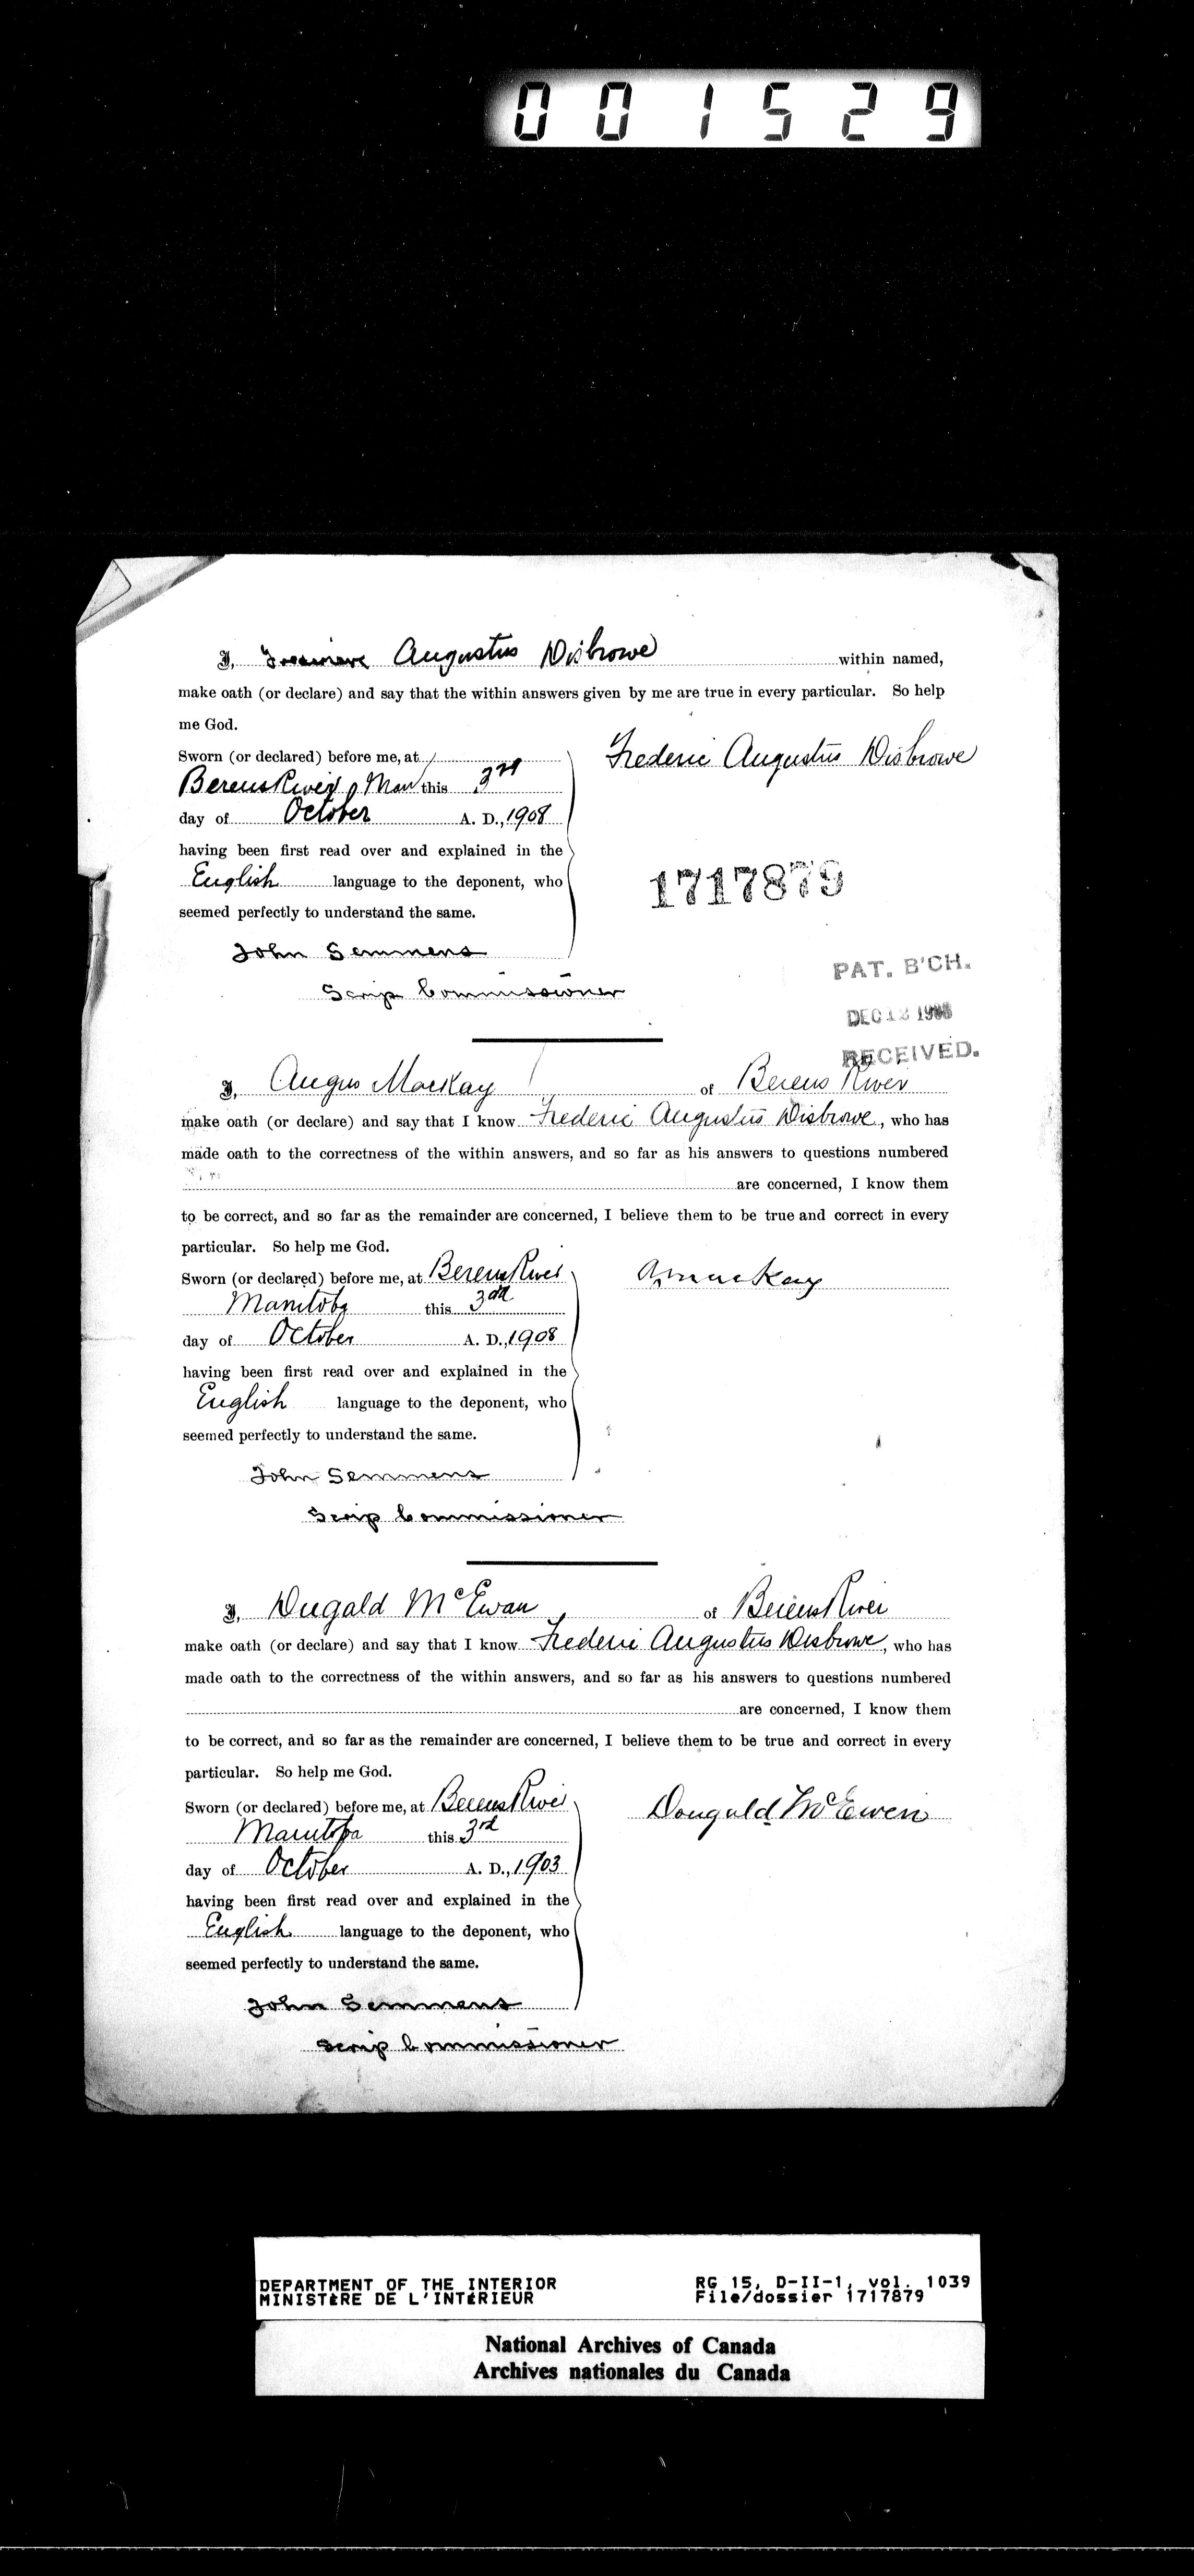 001529
I, Frederic Augustus Disbrowe within named,
make oath (or declare) and say that the within answers given by me are true in every particular. So help
me God.
Sworn (or declared) before me, at
Berens River, Man this 3rd
day of October A. D., 1908
having been first read over and explained in the
English language to the deponent, who
seemed perfectly to understand the same.
John Semmens
Scrip Commissioner
Frederic Augustus Disbrowe
1717879
PAT. B'CH.
DEC 12 1908
RECEIVED.
I, Angus MacKay of Berens River
make oath (or declare) and say that I know Frederic Augustus Disbrowe, who has
made oath to the correctness of the within answers, and so far as his answers to questions numbered
are concerned, I know them
to be correct, and so far as the remainder are concerned, I believe them to be true and correct in every
particular. So help me God.
Sworn (or declared) before me, at Berens River
Manitoba this 3rd
day of October A. D., 1908
having been first read over and explained in the
English language to the deponent, who
seemed perfectly to understand the same.
John Semmens
Scrip Commissioner
I, Dugald McEwan of Berens River
make oath (or declare) and say that I know Frederic Augustus Disbrowe, who has
made oath to the correctness of the within answers, and so far as his answers to questions numbered
are concerned, I know them
to be correct, and so far as the remainder are concerned, I believe them to be true and correct in every
particular. So help me God.
Sworn (or declared) before me, at Berens River
Manitoba this 3rd
day of October A. D., 1903
having been first read over and explained in the
English language to the deponent, who
seemed perfectly to understand the same.
John Semmens
Scrip Commissioner
Dougald McEwen
DEPARTMENT OF THE INTERIOR
MINISTÈRE DE L'INTÉRIEUR
RG 15, D-II-1, vol. 1039
File/dossier 1717879
National Archives of Canada
Archives nationales du Canada